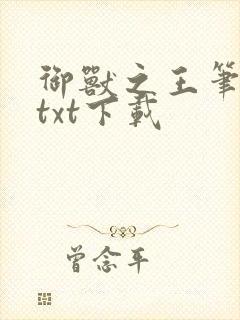 御獸之王筆
txt下載
曾念平